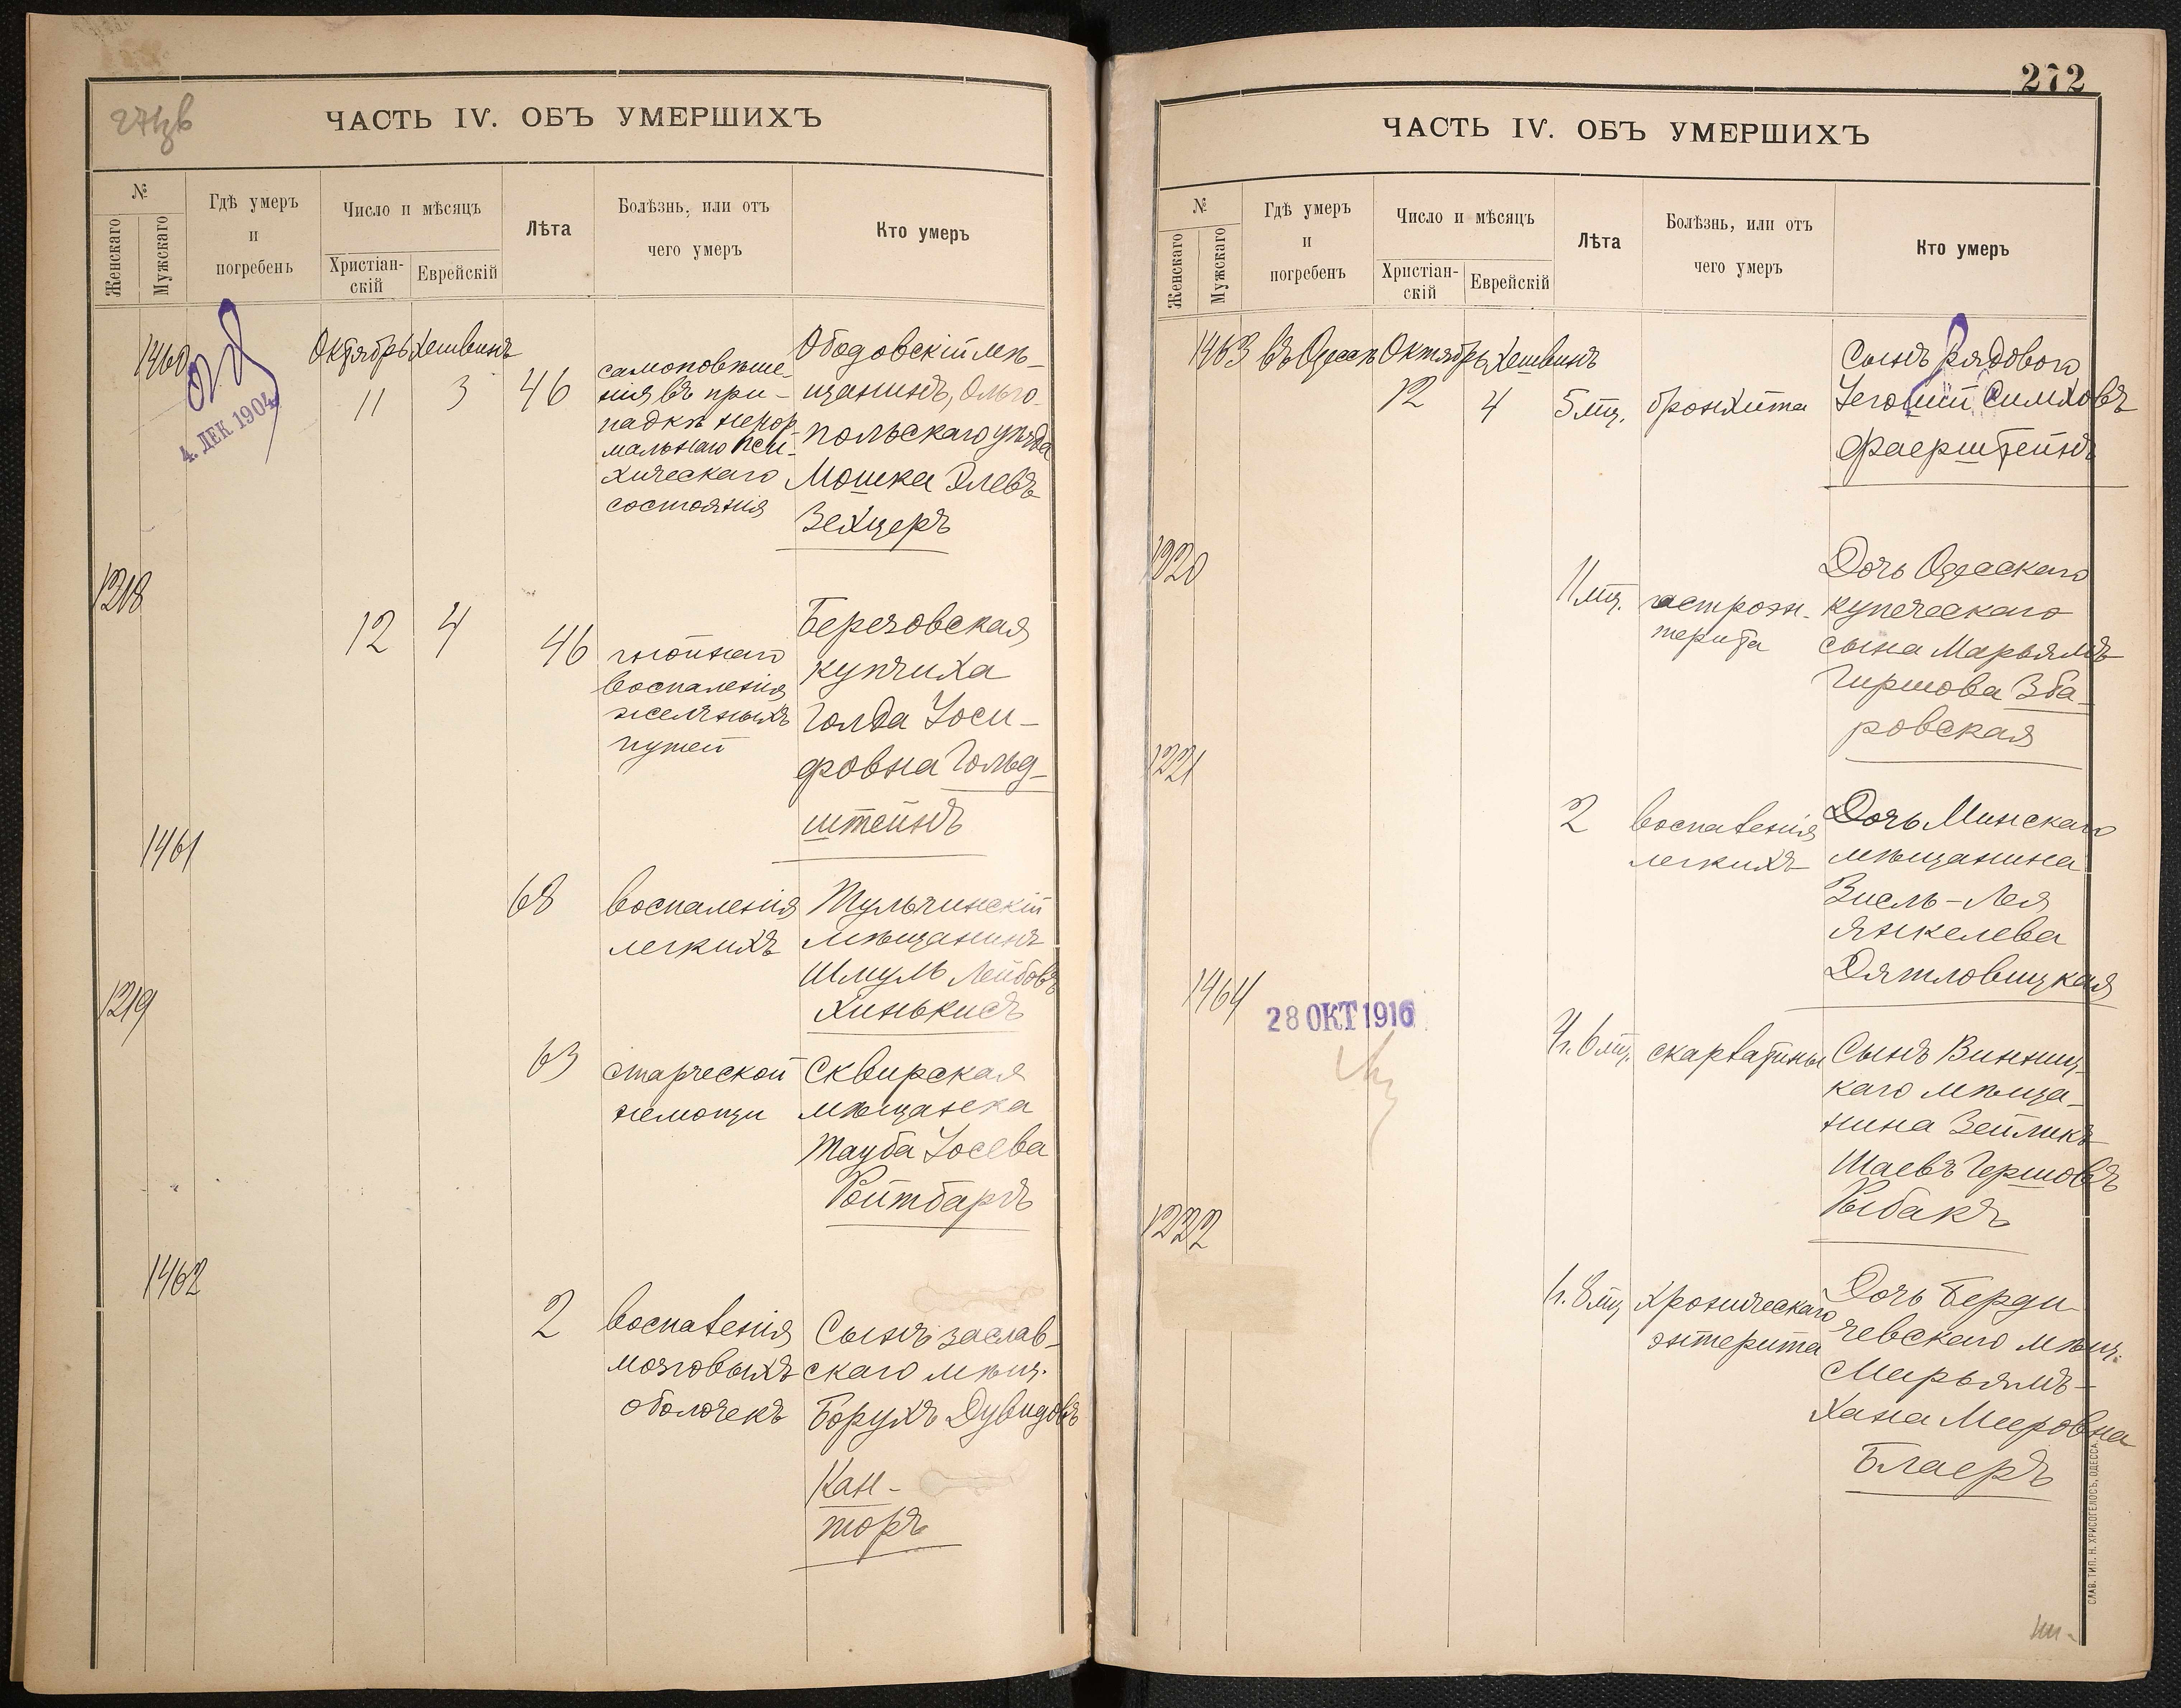 ЧАСТЬ IV. ОБЪ УМЕРШИХЪ
№
Женскаго
Мужскаго
Гдѣ умеръ
и
погребенъ
Число и мѣсяцъ
Христіан-
скій
Еврейскій
Лѣта
Болѣзнь, или отъ
чего умеръ
Кто умеръ
1460
4. ДЕК 1904
Октябрь Хешвинъ
11
3
46
самоповѣше-
нія въ при-
падкѣ ненор-
мальнаго пси-
хическаго
состоянія
Ободовскій мѣ-
щанинъ, Ольго-
польскаго уѣзда
Мошка Элевъ
Зехцеръ
1218
12
4
46
гнойнаго
воспаленія
желчныхъ
путей
Березовская
купчиха
Голда Іоси-
фовна Гольд-
штейнъ
1461
68
воспаленія
легкихъ
Тульчинскій
мѣщанинъ
Шмуль Лейбовъ
Хинькисъ
1219
63
старческой
немощи
Сквирская
мѣщанка
Тауба Іосева
Ройтбаргъ
1462
2
воспаленія
мозговыхъ
оболочекъ
Сынъ заслав-
скаго мѣщ.
Борухъ Дувидовъ
Кан-
торъ
272
ЧАСТЬ IV. ОБЪ УМЕРШИХЪ
№
Женскаго
Мужскаго
Гдѣ умеръ
и
погребенъ
Число и мѣсяцъ
Христіан-
скій
Еврейскій
Лѣта
Болѣзнь, или отъ
чего умеръ
Кто умеръ
1463
въ Одессѣ
Октябрь Хешвинъ
12
4
5 мц.
бронхита
Сынъ рядового
Симховъ
Фаерштейнъ
1220
11 мц.
гастроэн-
терита
Дочь Одесскаго
купеческаго
сына Марьямъ
Гиршова Зба-
ровская
1221
2
воспаленія
легкихъ
Дочь Минскаго
мѣщанина
Зисль-Лея
Янкелева
Дятловицкая
1464
28 ОКТ 1916
4 г. 6 мц.
скарлатины
Сынъ Винниц-
каго мѣща-
нина Зейликъ
Шаевъ Гершовъ
Рыбакъ
1222
1 г. 8 мц
хроническаго
энтерита
Дочь Берди-
чевскаго мѣщ.
Марьямъ-
Хана Мееровна
Блаеръ
СЛАВ. ТИП. Н. ХРИСОГЕЛОСЪ, ОДЕССА.